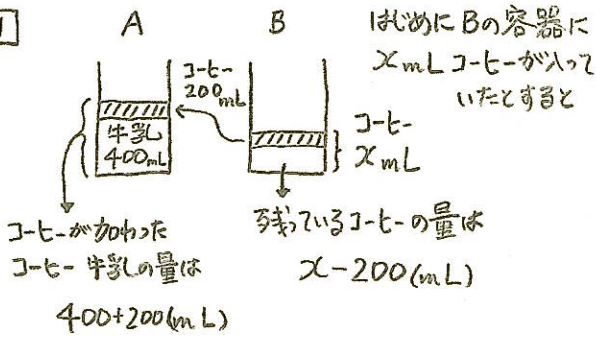 1
A
B
はじめにBの容器に
xmLコーヒーが入って
いたとすると
コーヒー
200mL
牛乳
400mL
コーヒー
xmL
コーヒーが加わった
コーヒー牛乳の量は
400+200(mL)
残っているコーヒーの量は
x-200(mL)